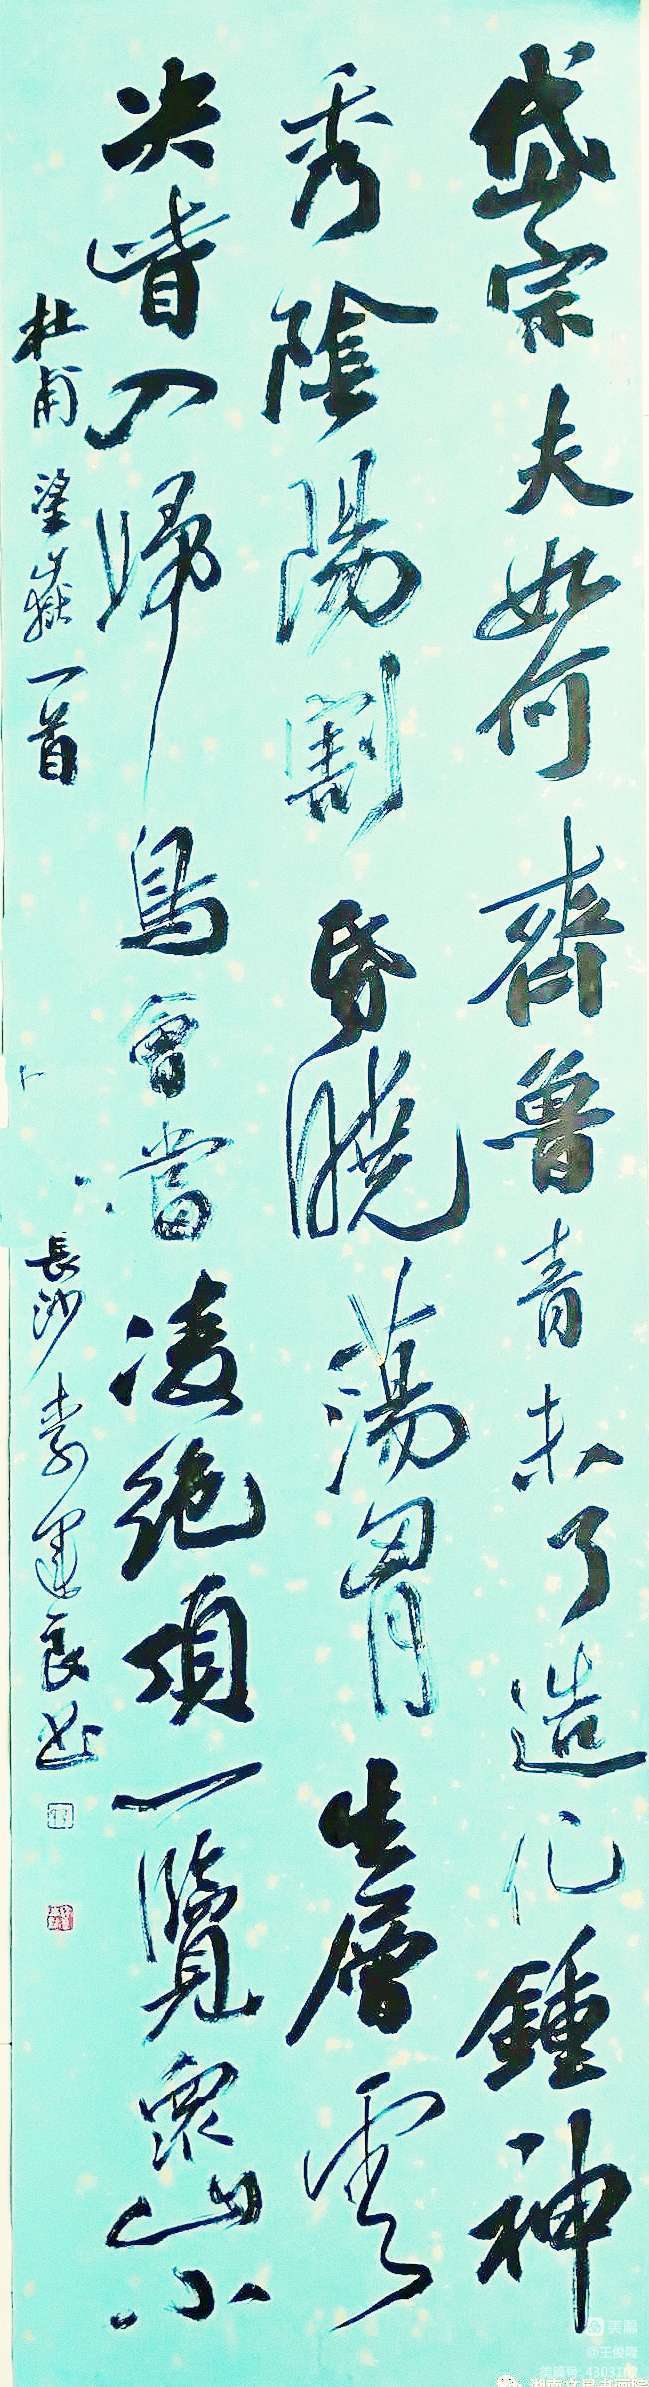 岱宗夫如何齊魯青未了造化鍾神
秀陰陽割昏曉蕩胷生層雲
决眥入歸鳥會當凌絶頂一覽衆山小
杜甫望嶽一首
長沙李建良书
美篇
@王俊隆